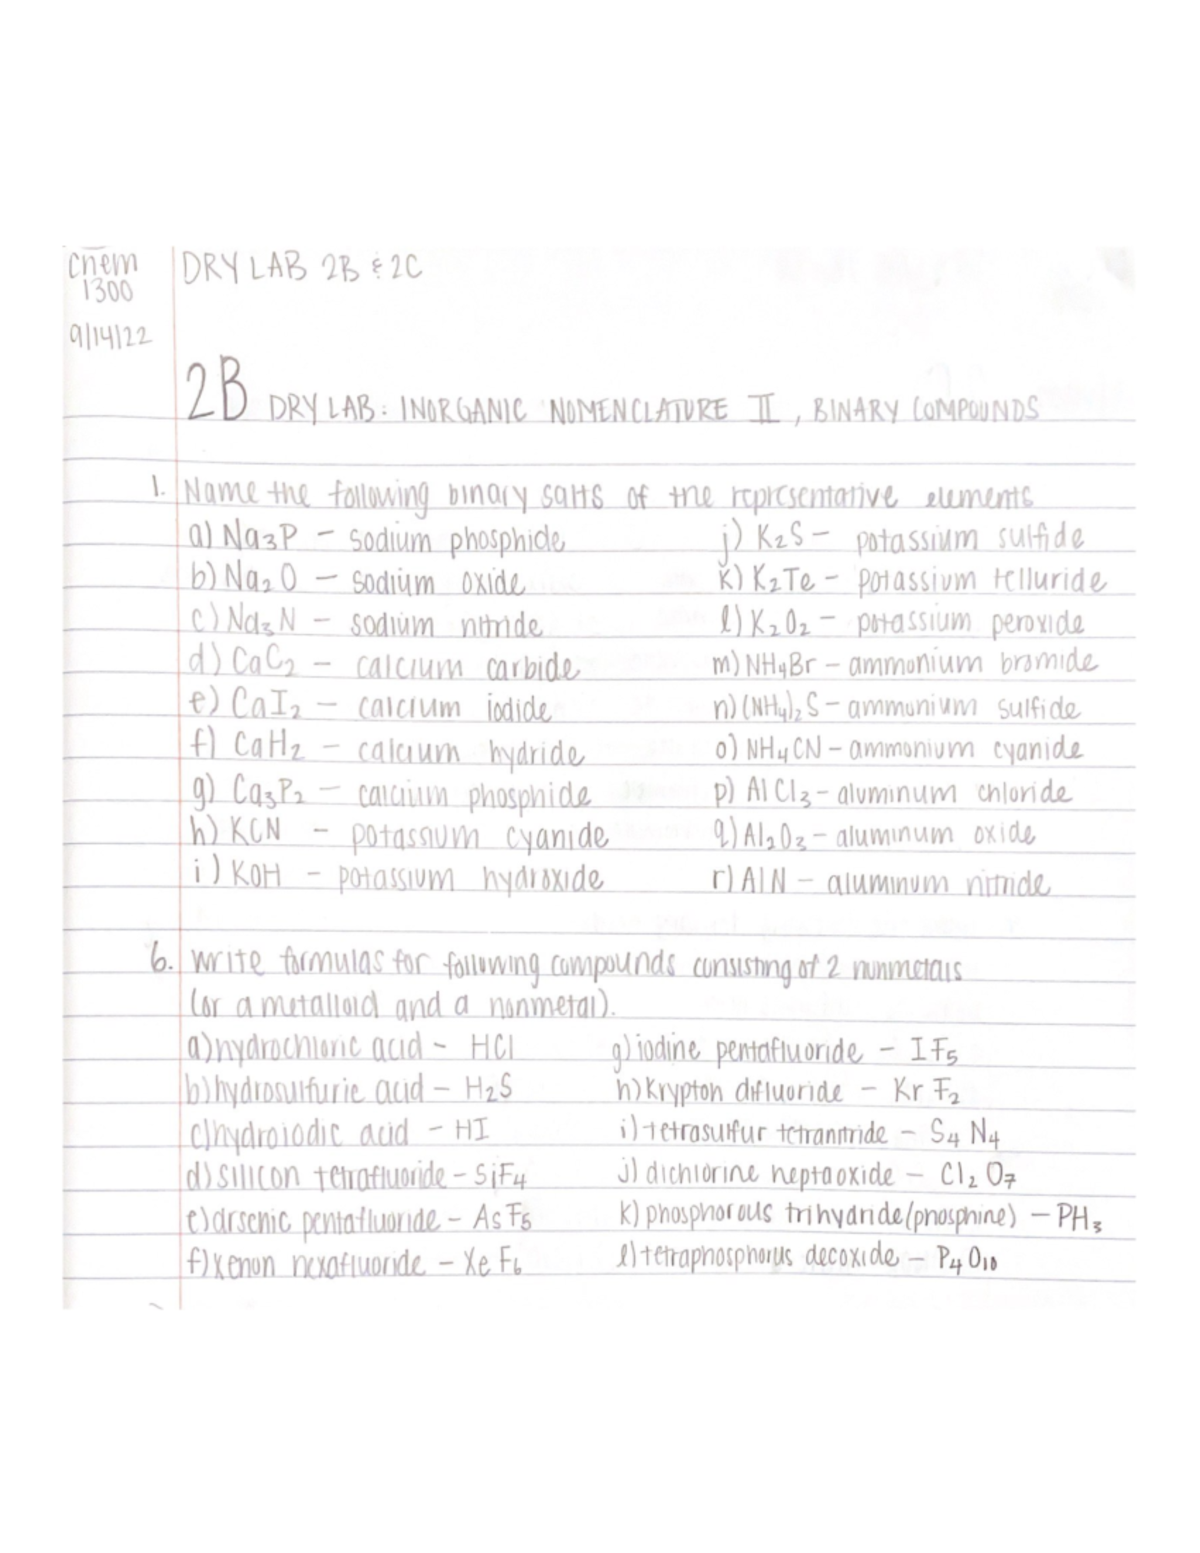 Chem DRY LAB 2B & 2C
1300
9/14/22
2B DRY LAB: INORGANIC NOMENCLATURE II, BINARY COMPOUNDS
1. Name the following binary salts of the representative elements
a) Na₃P - sodium phosphide
b) Na₂O - sodium oxide
c) Na₃N - sodium nitride
d) CaC₂ - calcium carbide
e) CaI₂ - calcium iodide
f) CaH₂ - calcium hydride
g) Ca₃P₂ - calcium phosphide
h) KCN - potassium cyanide
i) KOH - potassium hydroxide
j) K₂S - potassium sulfide
k) K₂Te - potassium telluride
l) K₂O₂ - potassium peroxide
m) NH₄Br - ammonium bromide
n) (NH₄)₂S - ammonium sulfide
o) NH₄CN - ammonium cyanide
p) AlCl₃ - aluminum chloride
q) Al₂O₃ - aluminum oxide
r) AlN - aluminum nitride
6. Write formulas for following compounds consisting of 2 nonmetals
(or a metalloid and a nonmetal).
a) hydrochloric acid - HCl
b) hydrosulfuric acid - H₂S
c) hydroiodic acid - HI
d) silicon tetrafluoride - SiF₄
e) arsenic pentafluoride - AsF₅
f) xenon hexafluoride - XeF₆
g) iodine pentafluoride - IF₅
h) krypton difluoride - KrF₂
i) tetrasulfur tetranitride - S₄N₄
j) dichlorine heptaoxide - Cl₂O₇
k) phosphorous trihydride (phosphine) - PH₃
l) tetraphosphorus decoxide - P₄O₁₀